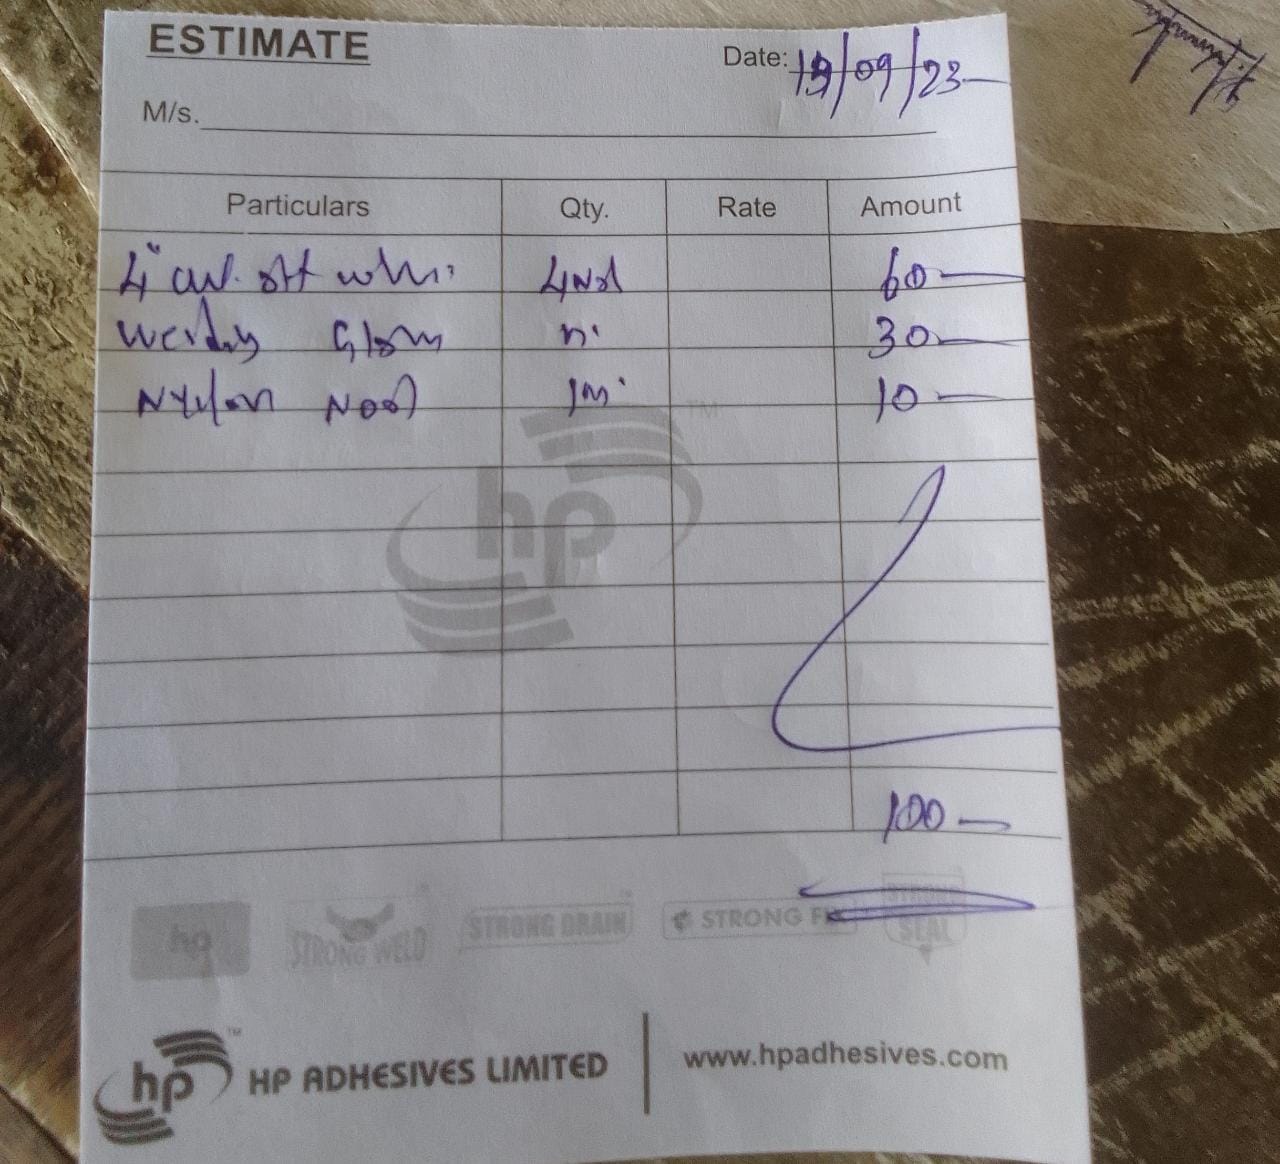 ESTIMATE
Date: 19/09/23
M/s.
Particulars Qty. Rate Amount
4" 4 Nos 60
30
Nylon 10
hp
TM
100
hp STRONG WELD STRONG DRAIN STRONG FIX STRONG SEAL
hp HP ADHESIVES LIMITED www.hpadhesives.com